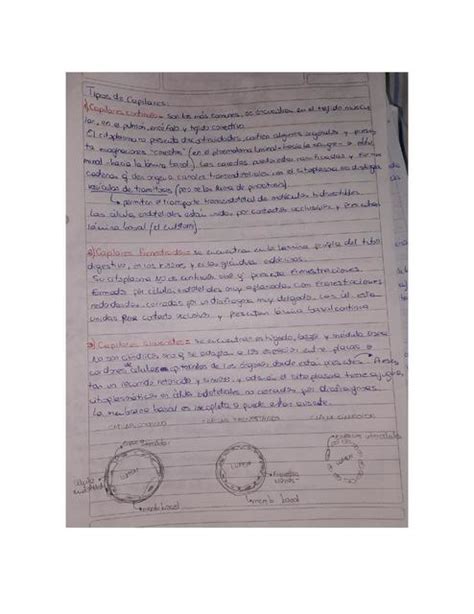 Tipos de Capilares.
1) Capilares continuos = Son los más comunes, se encuentran en el tejido muscu-
lar, en el pulmón, encéfalo y tejido conectivo.
El citoplasma no presenta discontinuidades, contien algunos organelos y
ta invaginaciones "caveolas" (en el plasmalema luminal = hacia la sangre =
minal = hacia la lámina basal). Las caveolas pueden
cadenas q' dan origen a canales transendoteliales en el citoplasma
vesículas de transitosis
↳ permiten el transporte transendotelial de moléculas
Las células endoteliales están unidas por contactos occlusivos y presentan
lámina basal (el continuo).
2) Capilares Fenestrados = se encuentran en la lámina propia del tubo
digestivo, en los riñones y en las glándulas endocrinas.
Su citoplasma NO es continuo sino q' presenta fenestraciones.
Formado por células endoteliales muy aplanadas, con fenestraciones
redondeadas, cerradas por un diafragma muy delgado. Las cél. están
unidas por contacto oclusivo y presentan lámina basal continua
3) Capilares Sinusoides = se encuentran en hígado, bazo y médula ósea
No son cilíndricos sino q' se adaptan a los espacios entre placas o
cordones celulares epiteliales de los órganos donde están presentes.
tan un recorrido retorcido y sinuoso, y además el citoplasma tiene agujeros
citoplasmáticos en células endoteliales no cerrados por diafragmas.
La membrana basal es incompleta o puede estar ausente.
CAPILAR CONTINUO
CAPILAR FENESTRADO
CAPILAR SINUSOIDE
LUMEN
LUMEN
LUMEN
célula endotelial
memb basal
memb basal